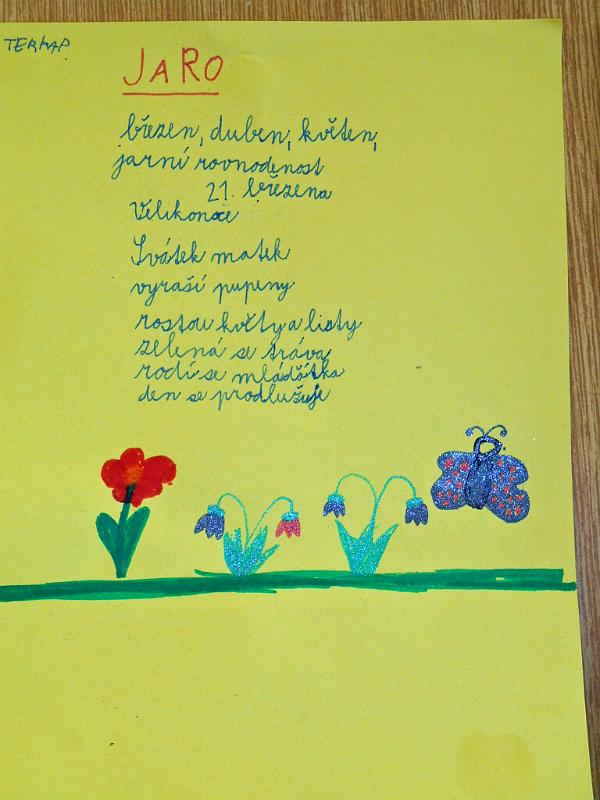 TERKAP
JARO
březen, duben, květen,
jarní rovnodenost
21. březena
Velikonoce
Svátek matek
vyraší pupeny
rostou květy a listy
zelená se tráva
rodí se mláďátka
den se prodlužuje